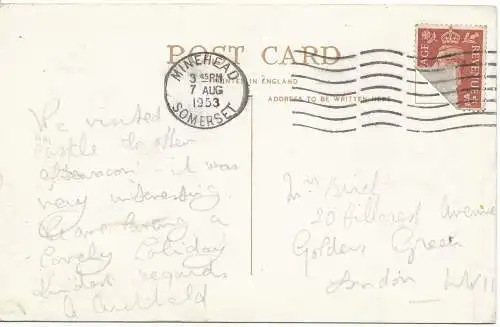 POST CARD
PRINTED IN ENGLAND
ADDRESS TO BE WRITTEN HERE
MINEHEAD
3 45 PM
7 AUG
1953
SOMERSET
POSTAGE REVENUE
We visited
castle the other
afternoon it was
very interesting.
are having a
Lovely Holiday
kindest regards
A
Birch
20 Hillcrest Avenue
Golders Green
London NW11